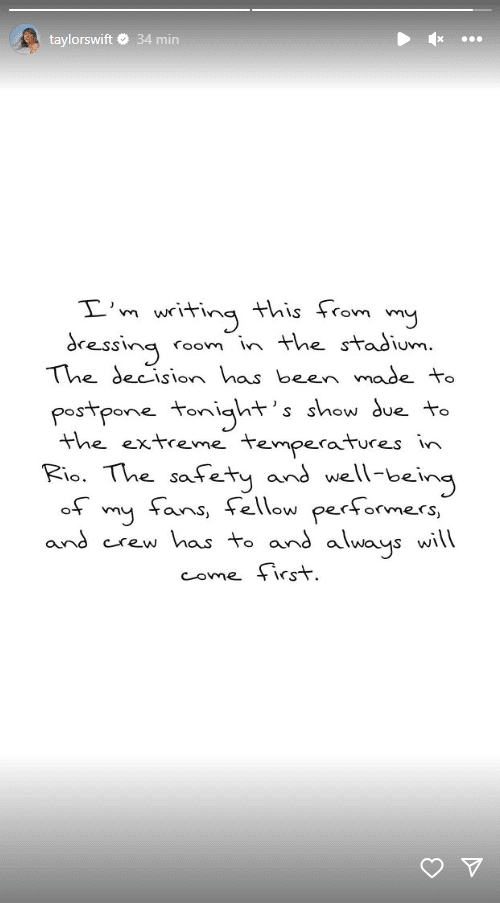 taylorswift 34 min
I'm writing this from my
dressing room in the stadium.
The decision has been made to
postpone tonight's show due to
the extreme temperatures in
Rio. The safety and well-being
of my fans, fellow performers,
and crew has to and always will
come first.